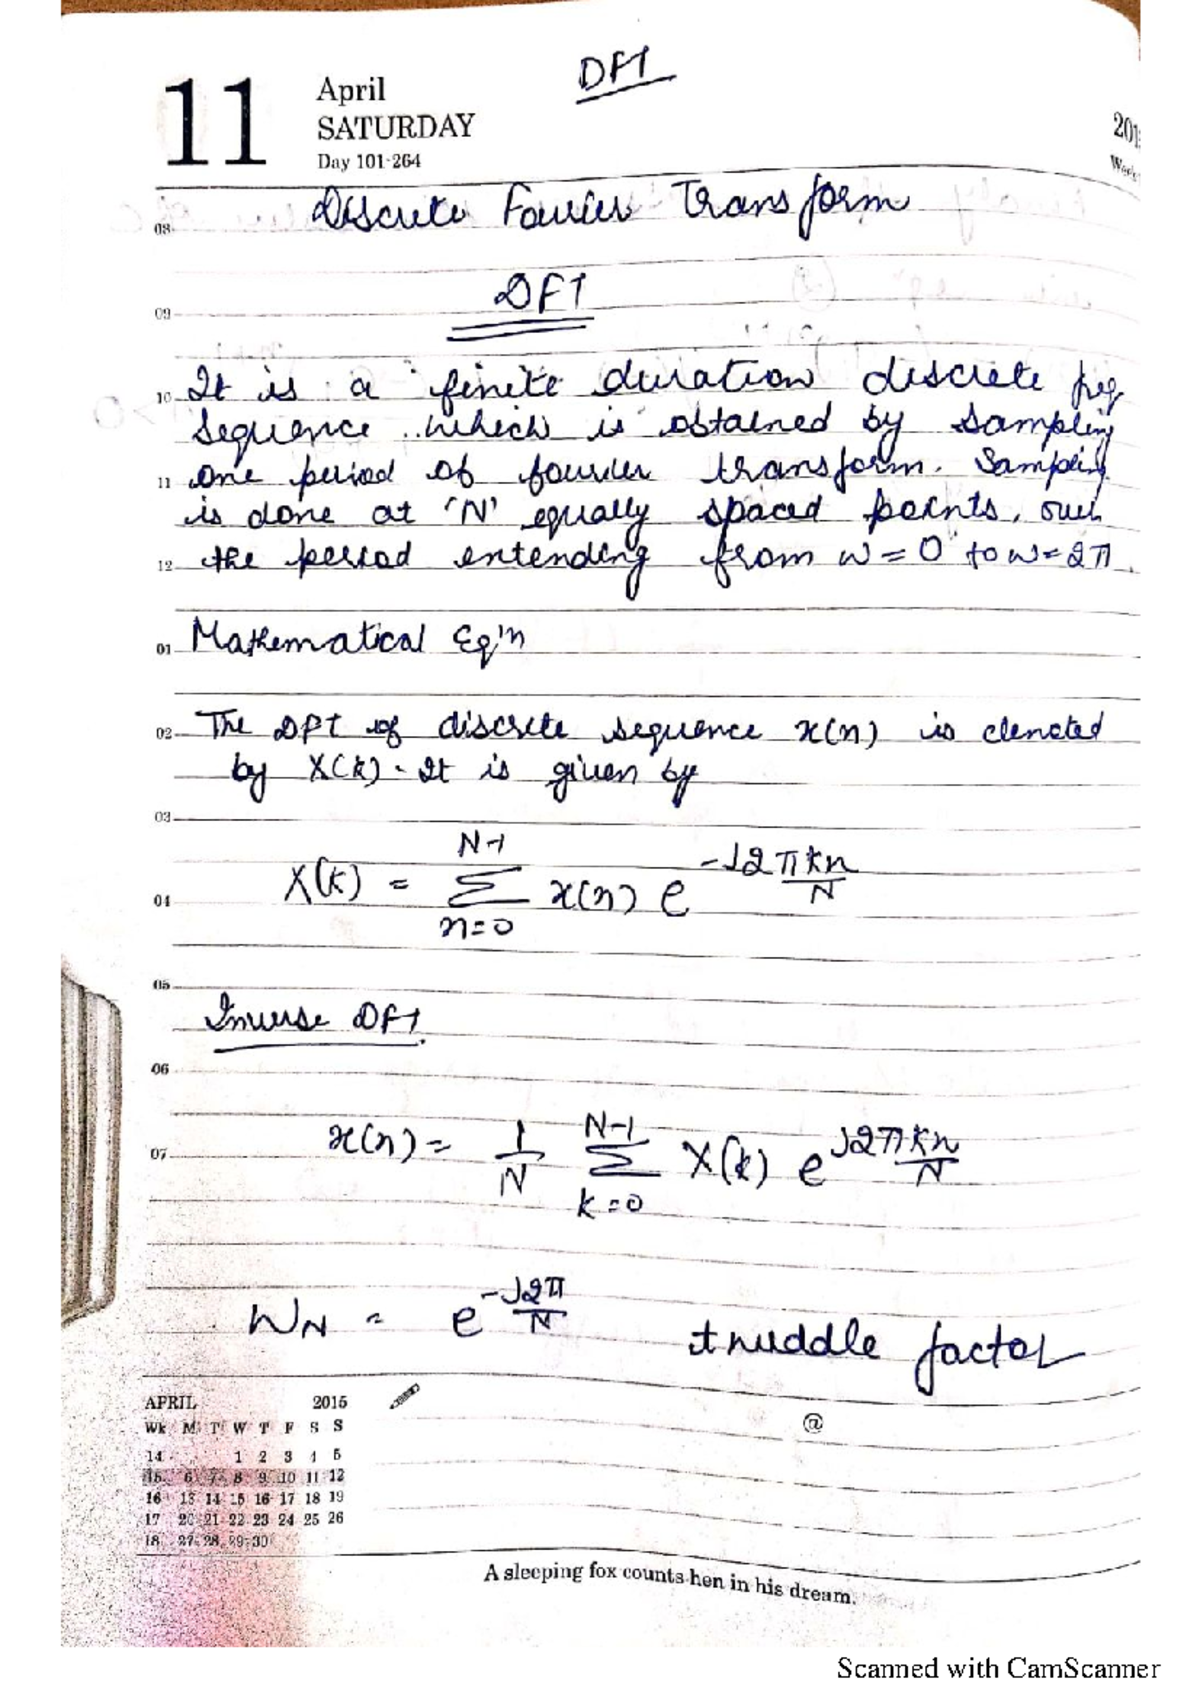 DFT
11
April
SATURDAY
Day 101-264
201
Week
Discrete Fourier Transform
08
DFT
09
10 It is a finite duration discrete freq.
sequence which is obtained by sampling
11 one period of fourier transform. Sampling
is done at 'N' equally spaced points, over
12 the period extending from w = 0 to w = 2π.
01 Mathematical Eq'n
02 The DFT of discrete sequence x(n) is denoted
by X(k). It is given by
03
04 X(k) = N-1 Σ n=0 x(n) e -j2πkn/N
05
Inverse DFT.
06
07 x(n) = 1/N N-1 Σ k=0 X(k) e j2πkn/N
W_N = e -j2π/N twiddle factor
APRIL 2015
Wk M T W T F S S
14 1 2 3 4 5
15 6 7 8 9 10 11 12
16 13 14 15 16 17 18 19
17 20 21 22 23 24 25 26
18 27 28 29 30
@
A sleeping fox counts hen in his dream.
Scanned with CamScanner